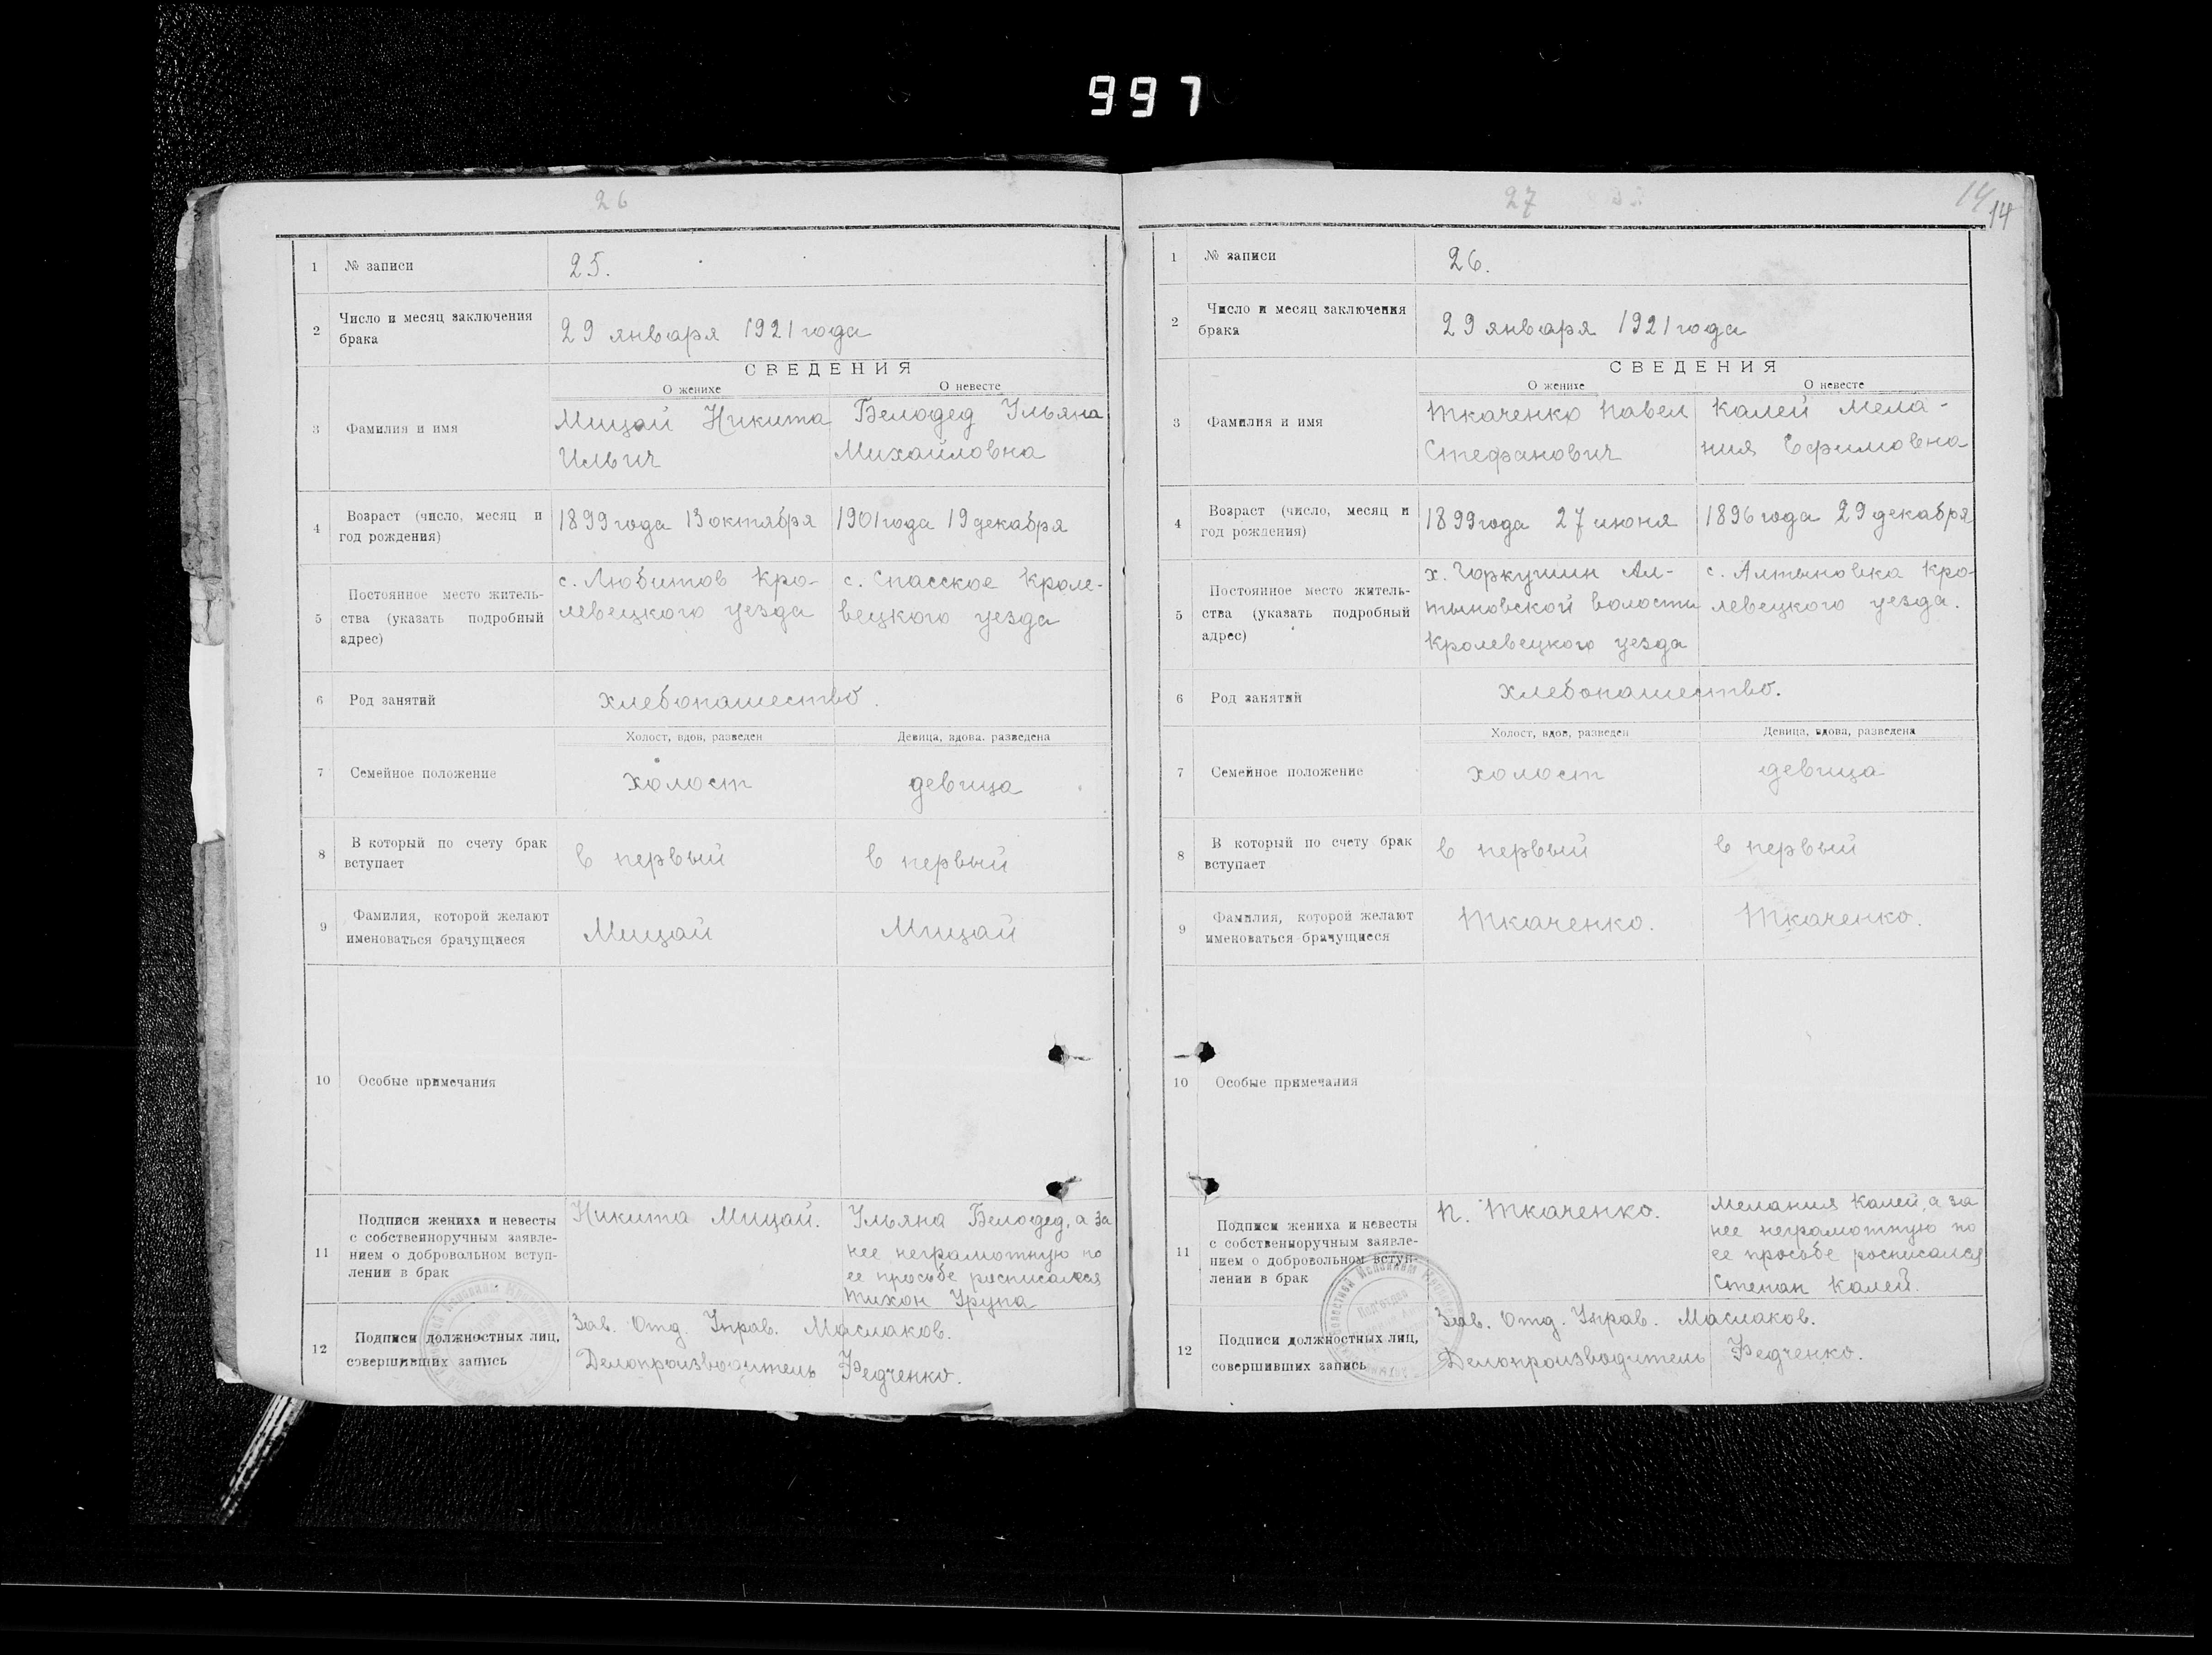 997
26
1 № записи 25.
2 Число и месяц заключения
брака
29 января 1921 года
СВЕДЕНИЯ
О женихе О невесте
3 Фамилия и имя
Мицай Никита Белодед Ульяна
Ильич Михайловна
4 Возраст (число, месяц и
год рождения)
1899 года 13 октября 1901 года 19 декабря
5 Постоянное место житель-
ства (указать подробный
адрес)
с. Любитов Кро- с. Спасское Кроле-
левецкого уезда вецкого уезда
6 Род занятий хлебопашество.
Холост, вдов, разведен Девица, вдова, разведена
7 Семейное положение холост девица
8 В который по счету брак
вступает
в первый в первый
9 Фамилия, которой желают
именоваться брачущиеся
Мицай Мицай
10 Особые примечания
11 Подписи жениха и невесты
с собственноручным заявле-
нием о добровольном вступ-
лении в брак
Никита Мицай. Ульяна Белодед, а за
нее неграмотную по
ее просьбе росписался
Тихон Урупа
12 Подписи должностных лиц,
совершивших запись
Зав. Отд. Управ. Маслаков.
Делопроизводитель Федченко.
27
14
14
1 № записи 26.
2 Число и месяц заключения
брака
29 января 1921 года
СВЕДЕНИЯ
О женихе О невесте
3 Фамилия и имя
Ткаченко Павел Калей Мела-
Стефанович ния Ефимовна
4 Возраст (число, месяц и
год рождения)
1899 года 27 июня 1896 года 29 декабря
5 Постоянное место житель-
ства (указать подробный
адрес)
х. Ал- с. Алтыновка Кро-
тыновской волости левецкого уезда.
Кролевецкого уезда
6 Род занятий хлебопашество.
Холост, вдов, разведен Девица, вдова, разведена
7 Семейное положение холост девица
8 В который по счету брак
вступает
в первый в первый
9 Фамилия, которой желают
именоваться брачущиеся
Ткаченко. Ткаченко.
10 Особые примечания
11 Подписи жениха и невесты
с собственноручным заявле-
нием о добровольном вступ-
лении в брак
П. Ткаченко. Мелания Калей, а за
нее неграмотную по
ее прособе росписался
Степан Калей.
12 Подписи должностных лиц,
совершивших запись
Зав. Отд. Управ. Маслаков.
Делопроизводитель Федченко.